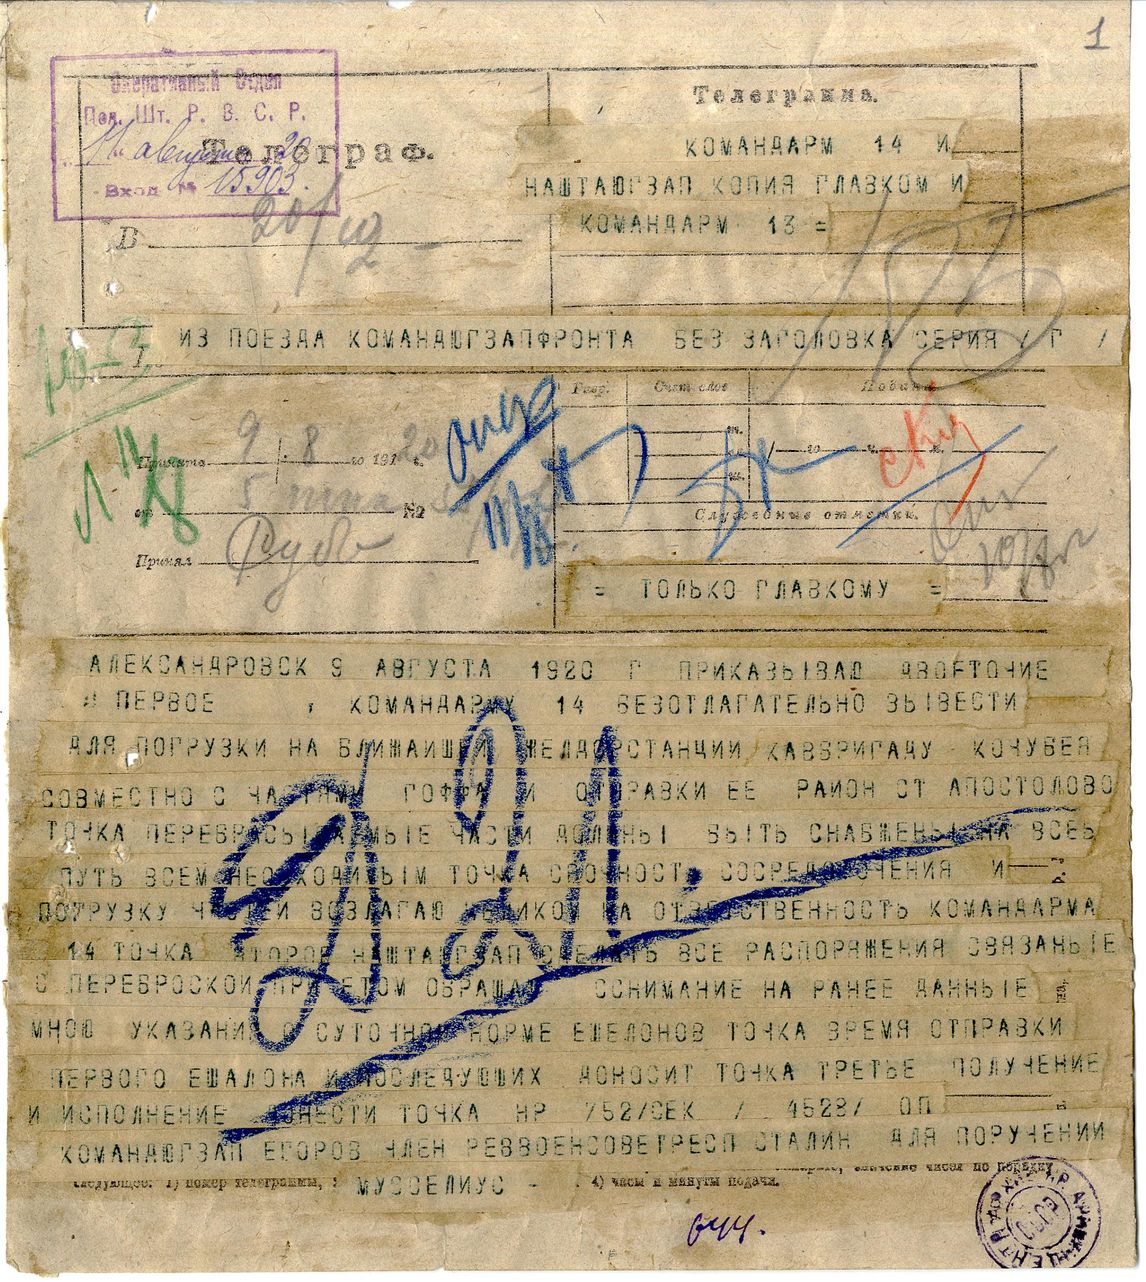 1
Оперативный Отдел
Пол. Шт. Р. В. С. Р.
11 августа 20
Вход № 15903.
Телеграф.
Телеграмма.
КОМАНДАРМ 14 И
НАШТАЮГЗАП КОПИЯ ГЛАВКОМ И
КОМАНДАРМ 13 =
В
ИЗ ПОЕЗДА КОМАНДЮГЗАПФРОНТА БЕЗ ЗАГОЛОВКА СЕРИЯ / Г /
Разр. Счет слов Подана
Принята 9 / 8 го 1920 г.
№
Служебные отметки.
Принял
= ТОЛЬКО ГЛАВКОМУ =
АЛЕКСАНДРОВСК 9 АВГУСТА 1920 Г ПРИКАЗЫВАЮ ДВОЕТОЧИЕ
ПЕРВОЕ , КОМАНДАРМУ 14 БЕЗОТЛАГАТЕЛЬНО ВЫВЕСТИ
ДЛЯ ПОГРУЗКИ НА БЛИЖАИШЕЙ ЖЕЛДОРСТАНЦИИ КАВБРИГАДУ КОЧУБЕЯ
СОВМЕСТНО С ЧАСТЯМИ ГОФФА И ОТПРАВКИ ЕЕ РАЙОН СТ АПОСТОЛОВО
ТОЧКА ПЕРЕБРАСЫВАЕМЫЕ ЧАСТИ ДОЛЖНЫ БЫТЬ СНАБЖЕНЫ НА ВСЕЬ
ПУТЬ ВСЕМ НЕОБХОДИМЫМ ТОЧКА СРОЧНОСТЬ СОСРЕДОТОЧЕНИЯ И
ПОГРУЗКУ ЧАСТЕЙ ВОЗЛАГАЮ ЦЕЛИКОМ НА ОТВЕТСТВЕННОСТЬ КОМАНДАРМА
14 ТОЧКА ВТОРОЕ НАШТАЮГЗАП СДЕЛАТЬ ВСЕ РАСПОРЯЖЕНИЯ СВЯЗАНЫЕ
С ПЕРЕБРОСКОЙ ПРИ ЭТОМ ОБРАЩАЮ ВНИМАНИЕ НА РАНЕЕ ДАННЫЕ
МНОЮ УКАЗАНИЯ О СУТОЧНОЙ НОРМЕ ЕШЕЛОНОВ ТОЧКА ВРЕМЯ ОТПРАВКИ
ПЕРВОГО ЕШАЛОНА И ПОСЛЕДУЮЩИХ ДОНОСИТ ТОЧКА ТРЕТЬЕ ПОЛУЧЕНИЕ
И ИСПОЛНЕНИЕ ДОНЕСТИ ТОЧКА НР 752/СЕК / 4528/ ОП
КОМАНДЮГЗАП ЕГОРОВ ЧЛЕН РЕВВОЕНСОВЕТРЕСП СТАЛИН ДЛЯ ПОРУЧЕНИИ
МУССЕЛИУС -
следующее: 1) номер телеграммы, 4) часы и минуты подачи.